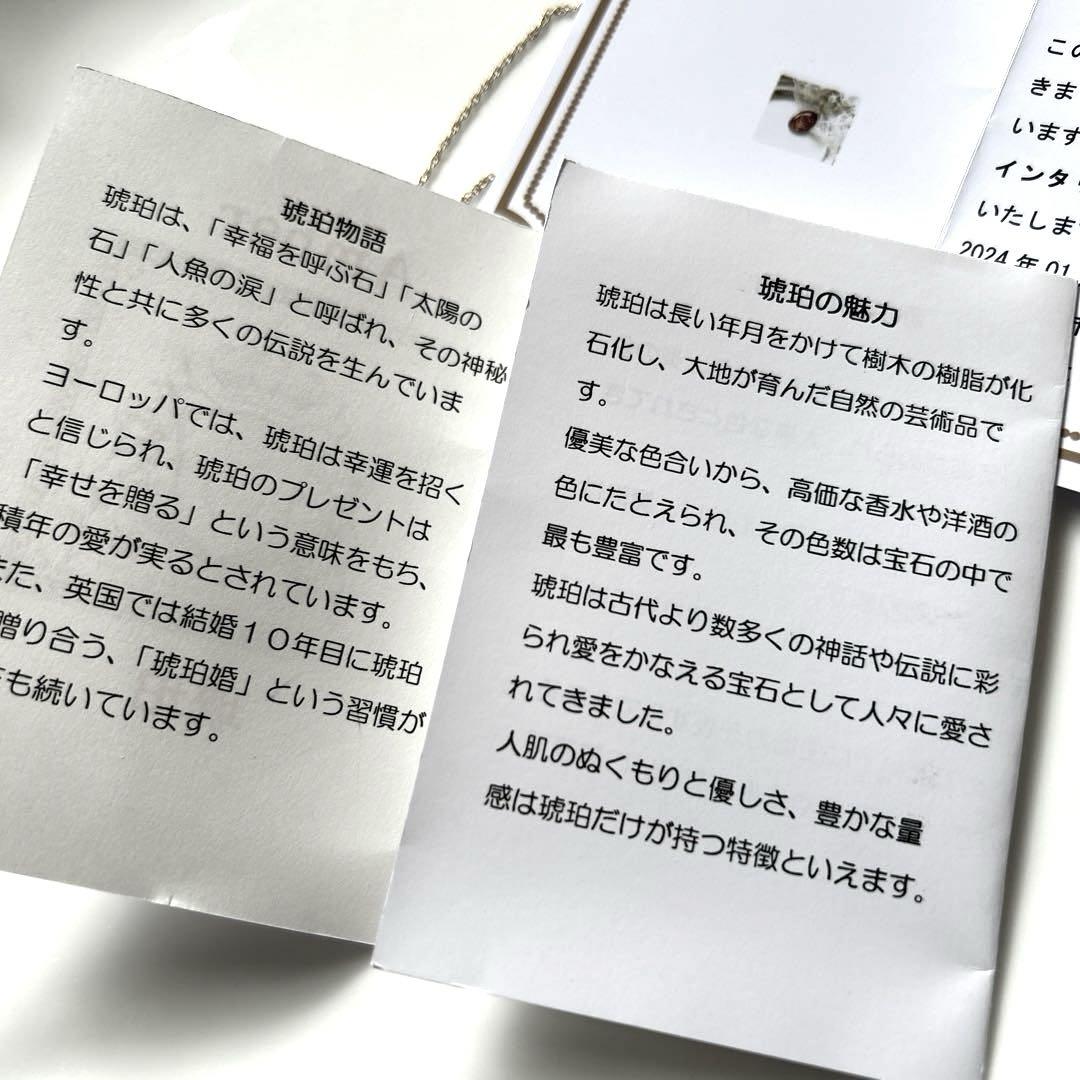 琥珀物語
琥珀は、「幸福を呼ぶ石」「太陽の
石」「人魚の涙」と呼ばれ、その神秘
性と共に多くの伝説を生んでいま
す。
ヨーロッパでは、琥珀は幸運を招く
と信じられ、琥珀のプレゼントは
「幸せを贈る」という意味をもち、
積年の愛が実るとされています。
た、英国では結婚１０年目に琥珀
贈り合う、「琥珀婚」という習慣が
も続いています。
琥珀の魅力
琥珀は長い年月をかけて樹木の樹脂が化
石化し、大地が育んだ自然の芸術品で
す。
優美な色合いから、高価な香水や洋酒の
色にたとえられ、その色数は宝石の中で
最も豊富です。
琥珀は古代より数多くの神話や伝説に彩
られ愛をかなえる宝石として人々に愛さ
れてきました。
人肌のぬくもりと優しさ、豊かな量
感は琥珀だけが持つ特徴といえます。
この
きま
います
インタ
いたしま
2024 年 01